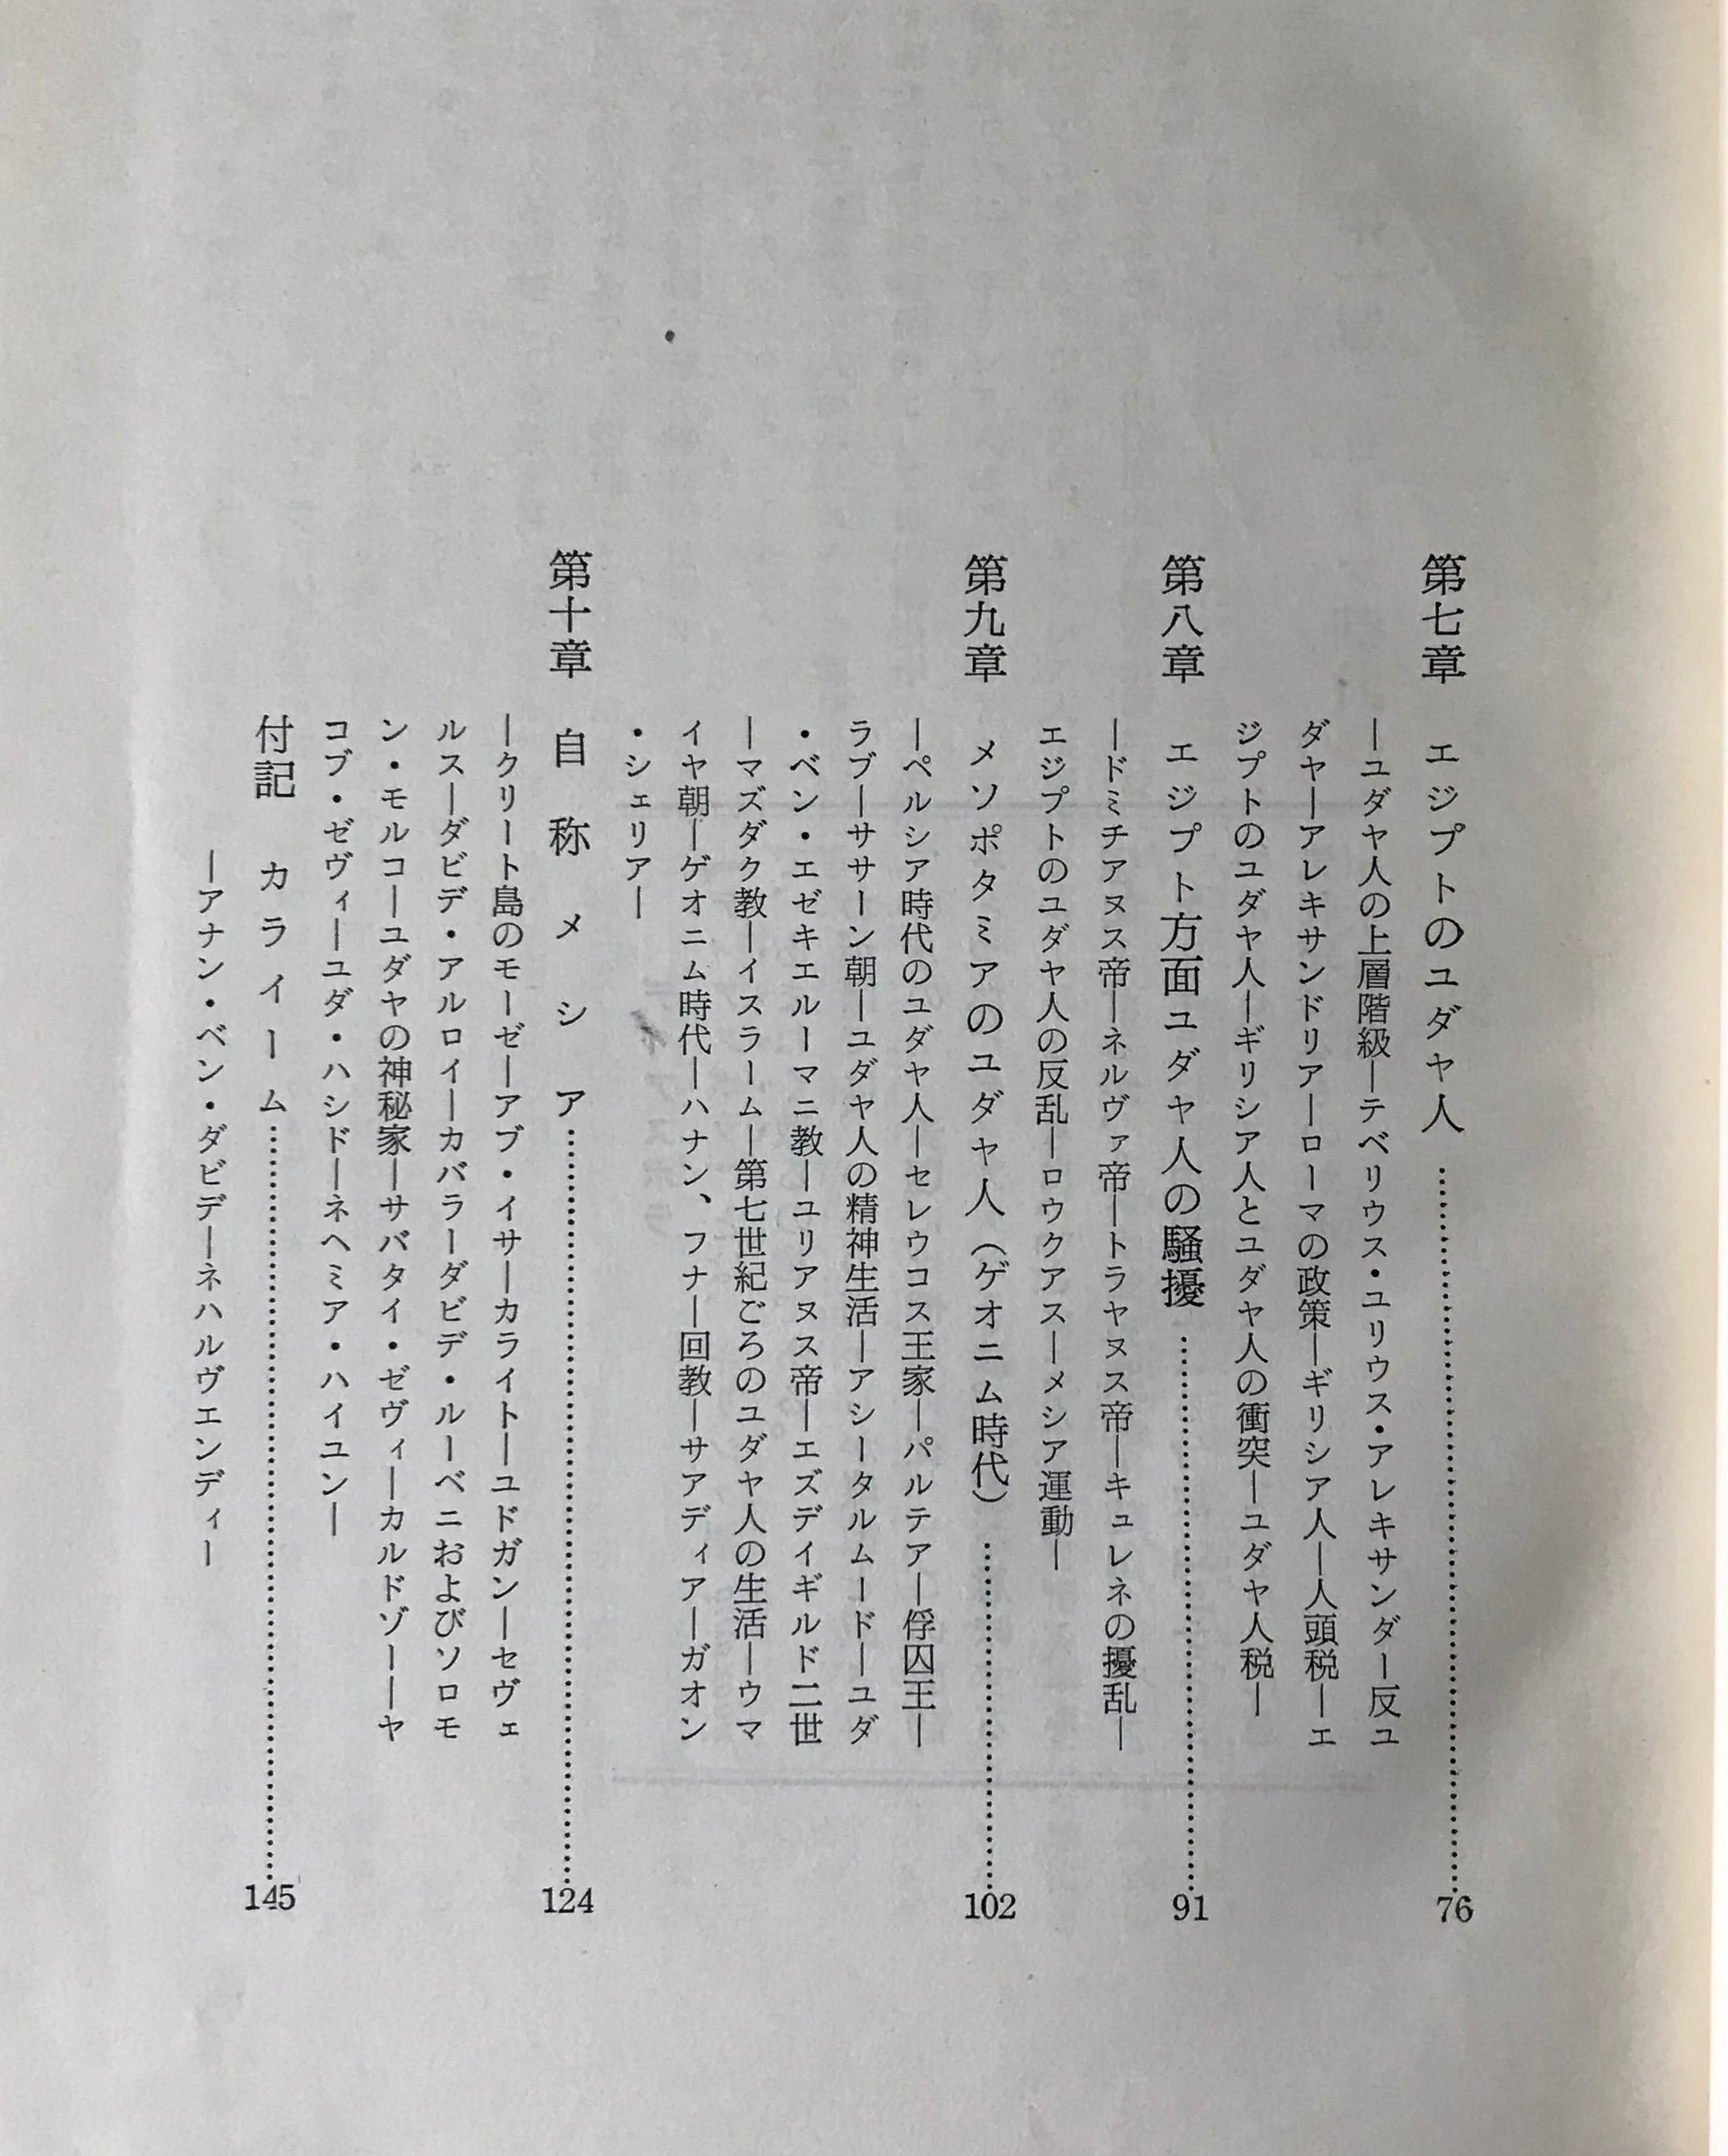 第七章 エジプトのユダヤ人……………………76
―ユダヤ人の上層階級―テベリウス・ユリウス・アレキサンダー反ユ
ダヤ―アレキサンドリア―ローマの政策―ギリシア人―人頭税―エ
ジプトのユダヤ人―ギリシア人とユダヤ人の衝突―ユダヤ人税―
第八章 エジプト方面ユダヤ人の騒擾……………………91
―ドミチアヌス帝―ネルヴァ帝―トラヤヌス帝―キュレネの擾乱―
エジプトのユダヤ人の反乱―ロウクアス―メシア運動―
第九章 メソポタミアのユダヤ人（ゲオニム時代）……………………102
―ペルシア時代のユダヤ人―セレウコス王家―パルテア―俘囚王―
ラブ―ササーン朝―ユダヤ人の精神生活―アシータルムード―ユダ
・ベン・エゼキエルーマニ教―ユリアヌス帝―エズデイギルド二世
―マズダク教―イスラーム―第七世紀ごろのユダヤ人の生活―ウマ
イヤ朝―ゲオニム時代―ハナン、フナー回教―サアディアーガオン
・シェリアー
第十章 自称メシア……………………124
―クリート島のモーゼ―アブ・イサーカライト―ユドガン―セヴェ
ルス―ダビデ・アルロイ―カバラーダビデ・ルーベニおよびソロモ
ン・モルコーユダヤの神秘家―サバタイ・ゼヴィーカルドゾー―ヤ
コブ・ゼヴィーユダ・ハシドーネヘミア・ハイユン―
付記 カライーム……………………145
―アナン・ベン・ダビデーネハルヴエンディー